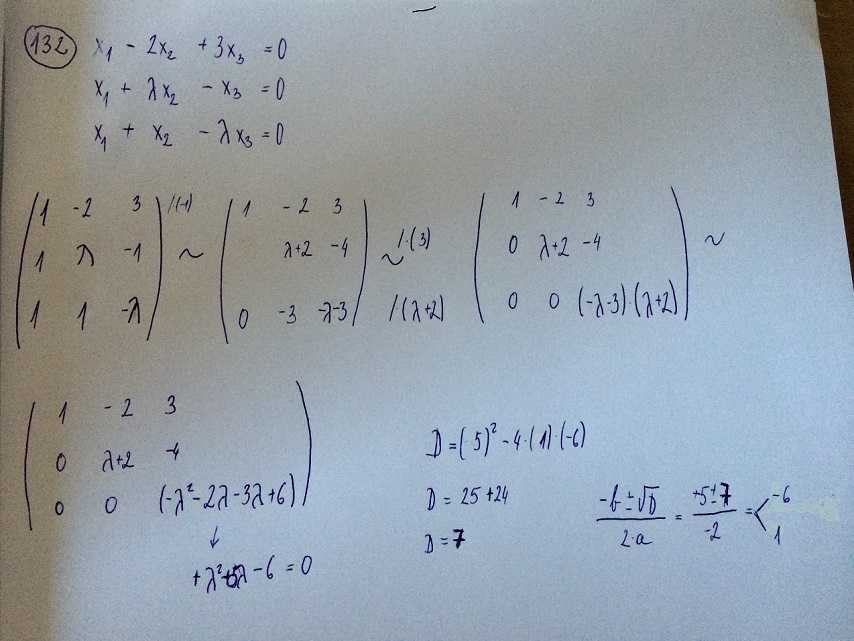 132 x₁ - 2x₂ + 3x₃ = 0
x₁ + λx₂ - x₃ = 0
x₁ + x₂ - λx₃ = 0
1 -2 3 /(-1) ~ 1 -2 3 1 -2 3
1 λ -1 λ+2 -4 ~ /·(3) 0 λ+2 -4 ~
1 1 -λ 0 -3 -λ-3 /·(λ+2) 0 0 (-λ-3)·(λ+2)
1 -2 3
0 λ+2 -4
0 0 (-λ²-2λ-3λ+6)
↓
+λ²+5λ-6 = 0
D = (5)² - 4·(1)·(-6)
D = 25+24
D = 7
-b±√D / 2·a = +5±7 / -2 = < -6
1